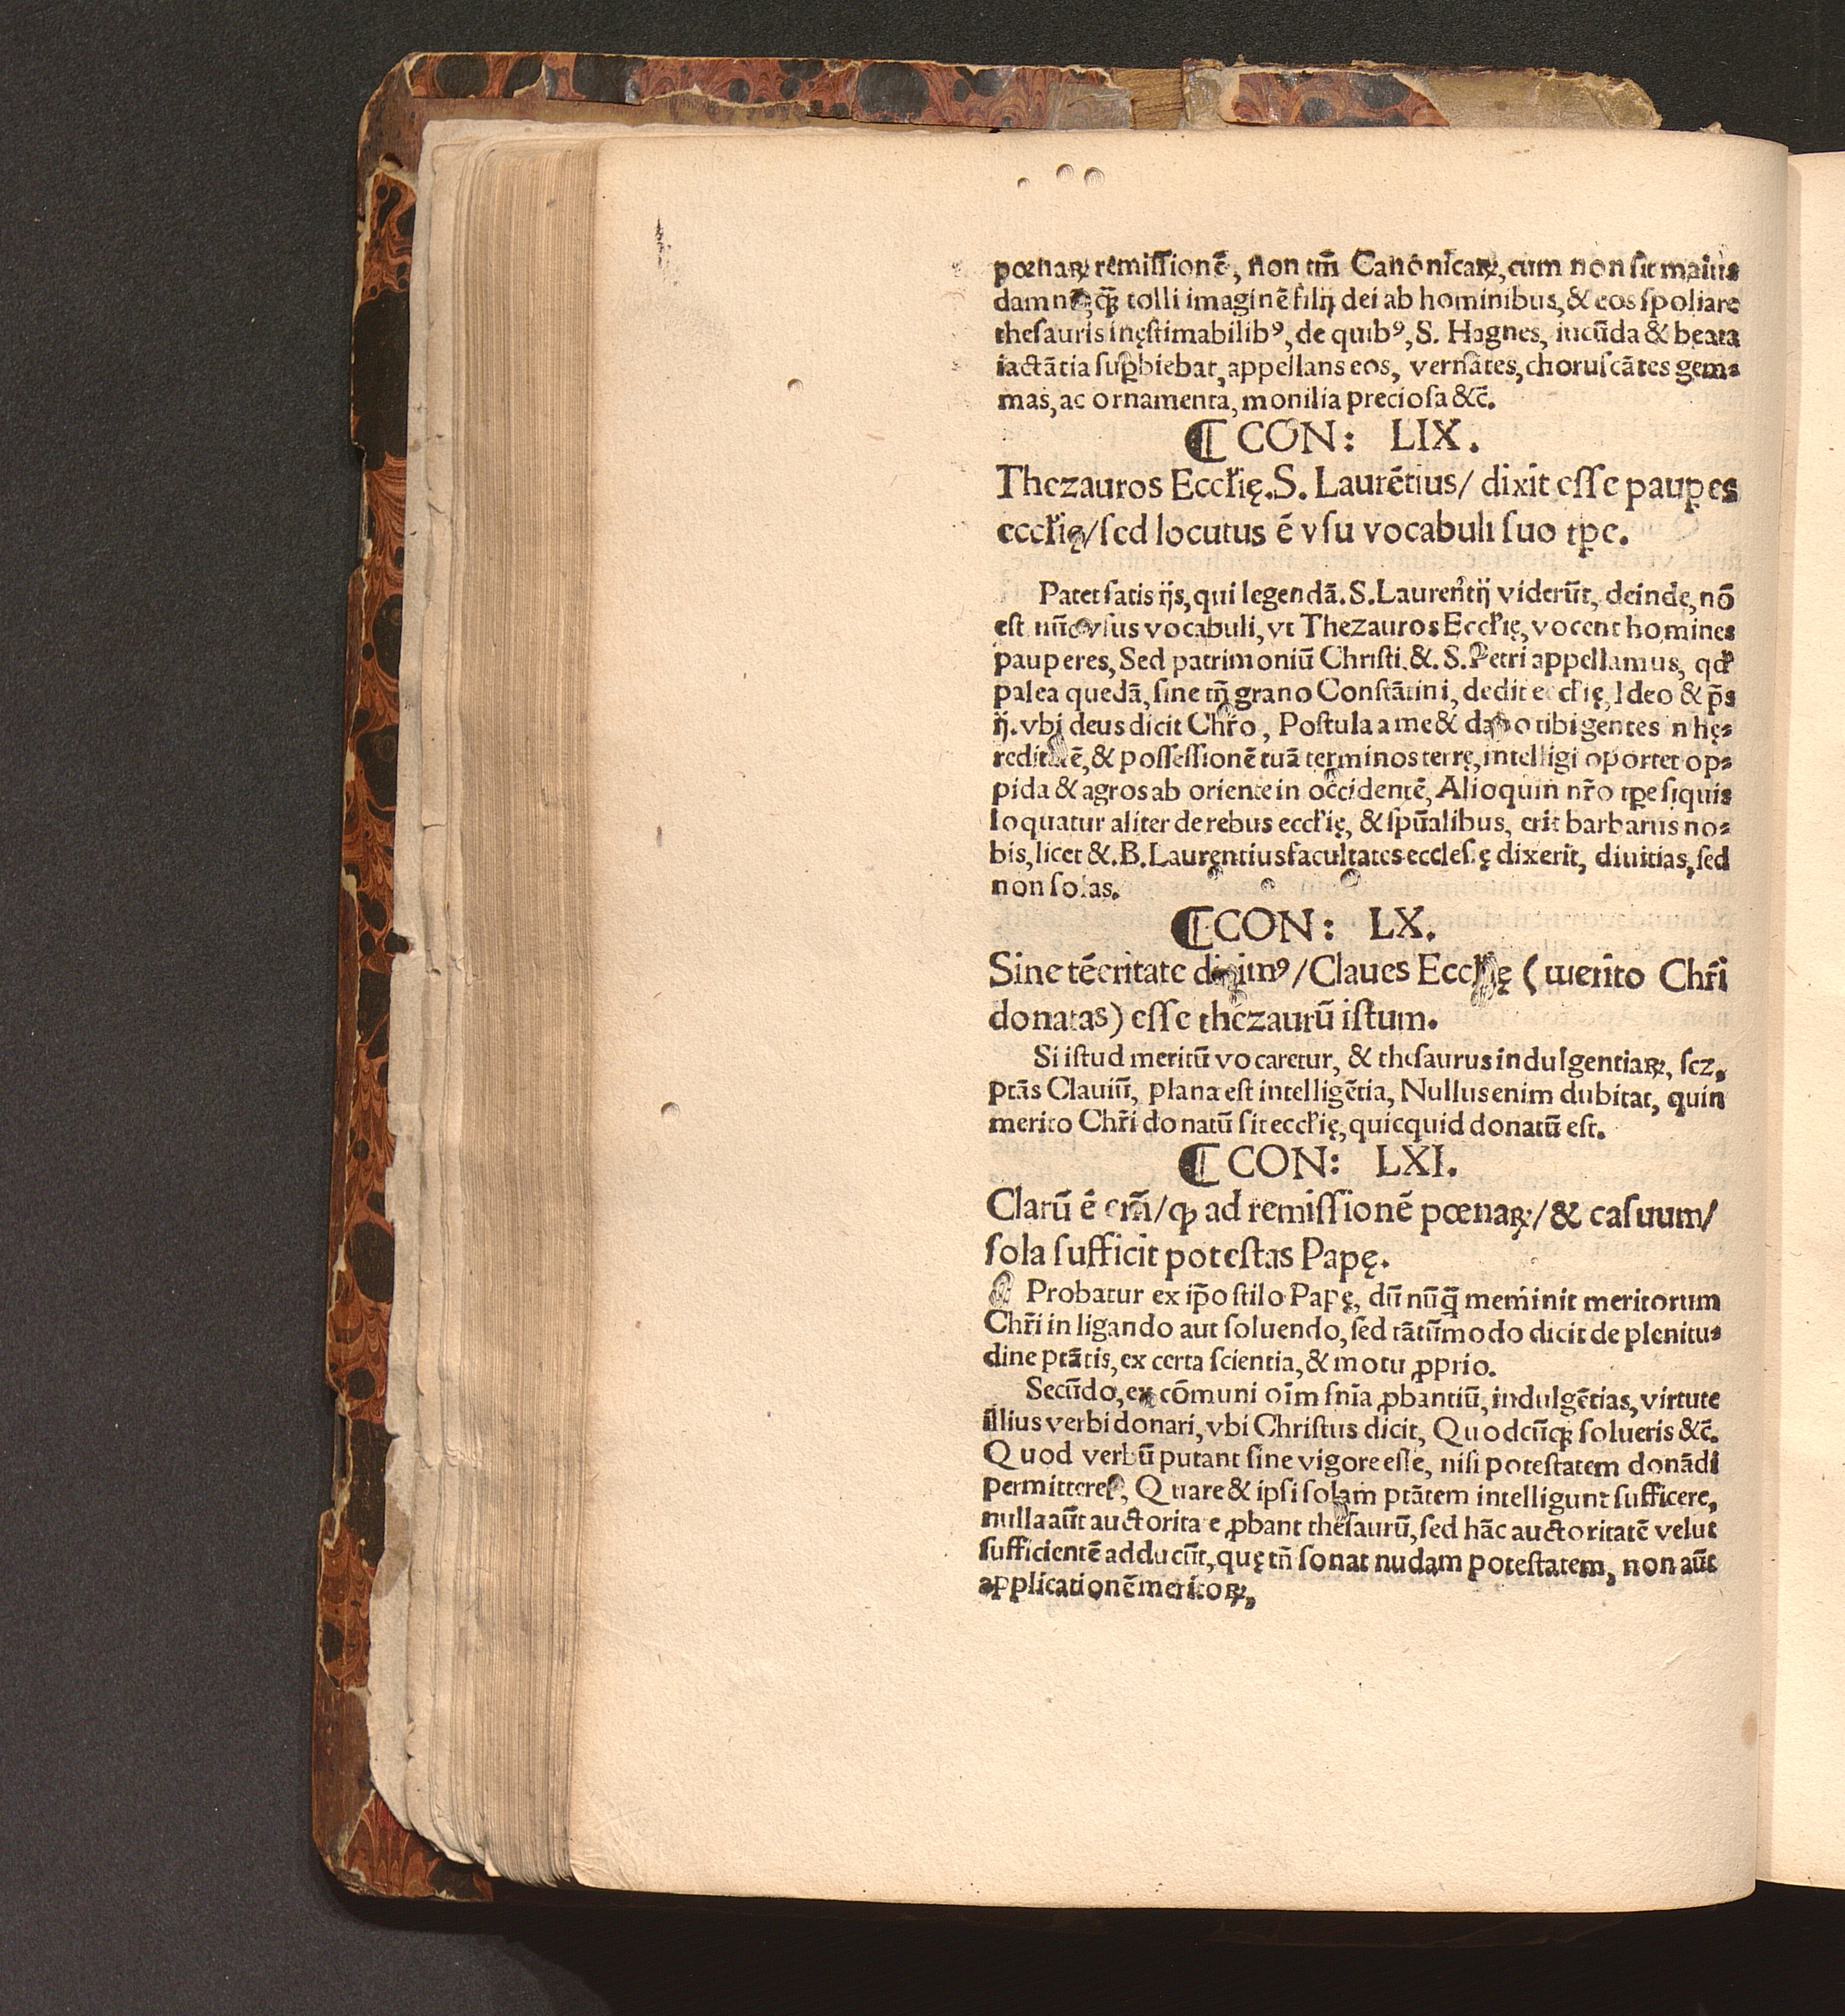 pœnaꝝ remissionē, non tm̄ Canonicaꝝ, cum non sit maius
damnū, ꝙ̄ tolli imaginē filij dei ab hominibus, & eos spoliare
thesauris inęstimabilibꝰ, de quibꝰ, S. Hagnes, iucūda & beata
iactātia suꝑbiebat, appellans eos, vernātes, choruscātes gem⸗
mas, ac ornamenta, monilia preciosa &c̄.
⁋ CON: LIX.
Thezauros Eccl̃ię. S. Laurētius/ dixit esse pauꝑes
eccl̃ię/ sed locutus ē vsu vocabuli suo tꝑe.
Patet satis ijs, qui legendā. S. Laurentij viderūt, deinde, nō
est nūc vsus vocabuli, vt Thezauros Eccl̃ię, vocent homines
pauperes, Sed patrimoniū Christi. &. S. Petri appellamus, qđ
palea quedā, sine tn̄ grano Constātini, dedit eccl̃ię, Ideo & p̄s
ij. vbi deus dicit Chr̃o, Postula a me & dabo tibi gentes in hę⸗
reditatē, & possessionē tuā terminos terrę, intelligi oportet op⸗
pida & agros ab oriente in occidentē, Alioquin nr̃o tꝑe siquis
loquatur aliter de rebus eccl̃ię, & spūalibus, erit barbarus no⸗
bis, licet &. B. Lauręntius facultates ecclesię dixerit, diuitias, sed
non solas.
⁋ CON: LX.
Sine tēeritate dicimꝰ/ Claues Eccl̃ię (merito Chr̃i
donatas) esse thezaurū istum.
Si istud meritū vocaretur, & thesaurus indulgentiaꝝ, scz,
ptās Clauiū, plana est intelligētia, Nullus enim dubitat, quin
merito Chr̃i donatū sit eccl̃ię, quicquid donatū est.
⁋ CON: LXI.
Clarū ē em̄/ ꝙ ad remissionē pœnaꝝ/ & casuum/
sola sufficit potestas Papę.
Probatur ex ip̄o stilo Papę, dū nūꝙ̄ meminit meritorum
Chr̃i in ligando aut soluendo, sed tātūmodo dicit de plenitu⸗
dine ptātis, ex certa scientia, & motu ꝓprio.
Secūdo, ex cōmuni oīm snīa ꝓbantiū, indulgētias, virtute
illius verbi donari, vbi Christus dicit, Quodcūqꝫ solueris &c̄.
Quod verbū putant sine vigore esse, nisi potestatem donādi
permitteret, Quare & ipsi solam ptātem intelligunt sufficere,
nulla aūt auctoritate ꝓbant thesaurū, sed hāc auctoritatē velut
sufficientē adducūt, quę tn̄ sonat nudam potestatem, non aūt
applicationē meritoꝝ,